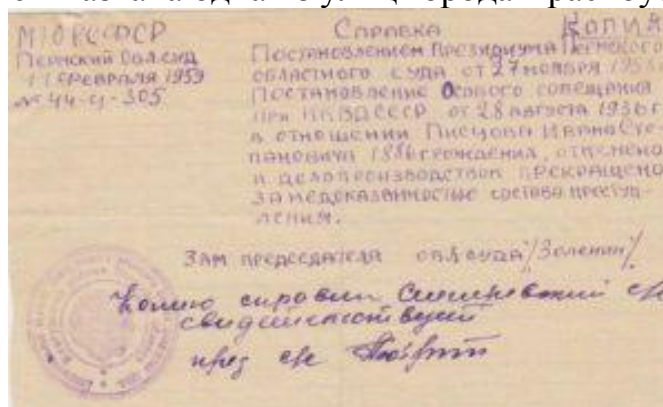 МЮ РСФСР
Пермский Облсуд
11 февраля 1959
№ 44-у-305
Справка
Копия
Постановлением Президиума Пермского
областного суда от 27 ноября
Постановление Особого совещания
при НКВД СССР от 28 августа 1936 г
в отношении Писцова Ивана Сте-
пановича 1886 г рождения, отменено
и делопроизводством прекращено
за недоказанностью состава преступ-
ления.
Зам председателя облсуда /Золенин/
Копию справки с/с
свидетельствует
пред с/с